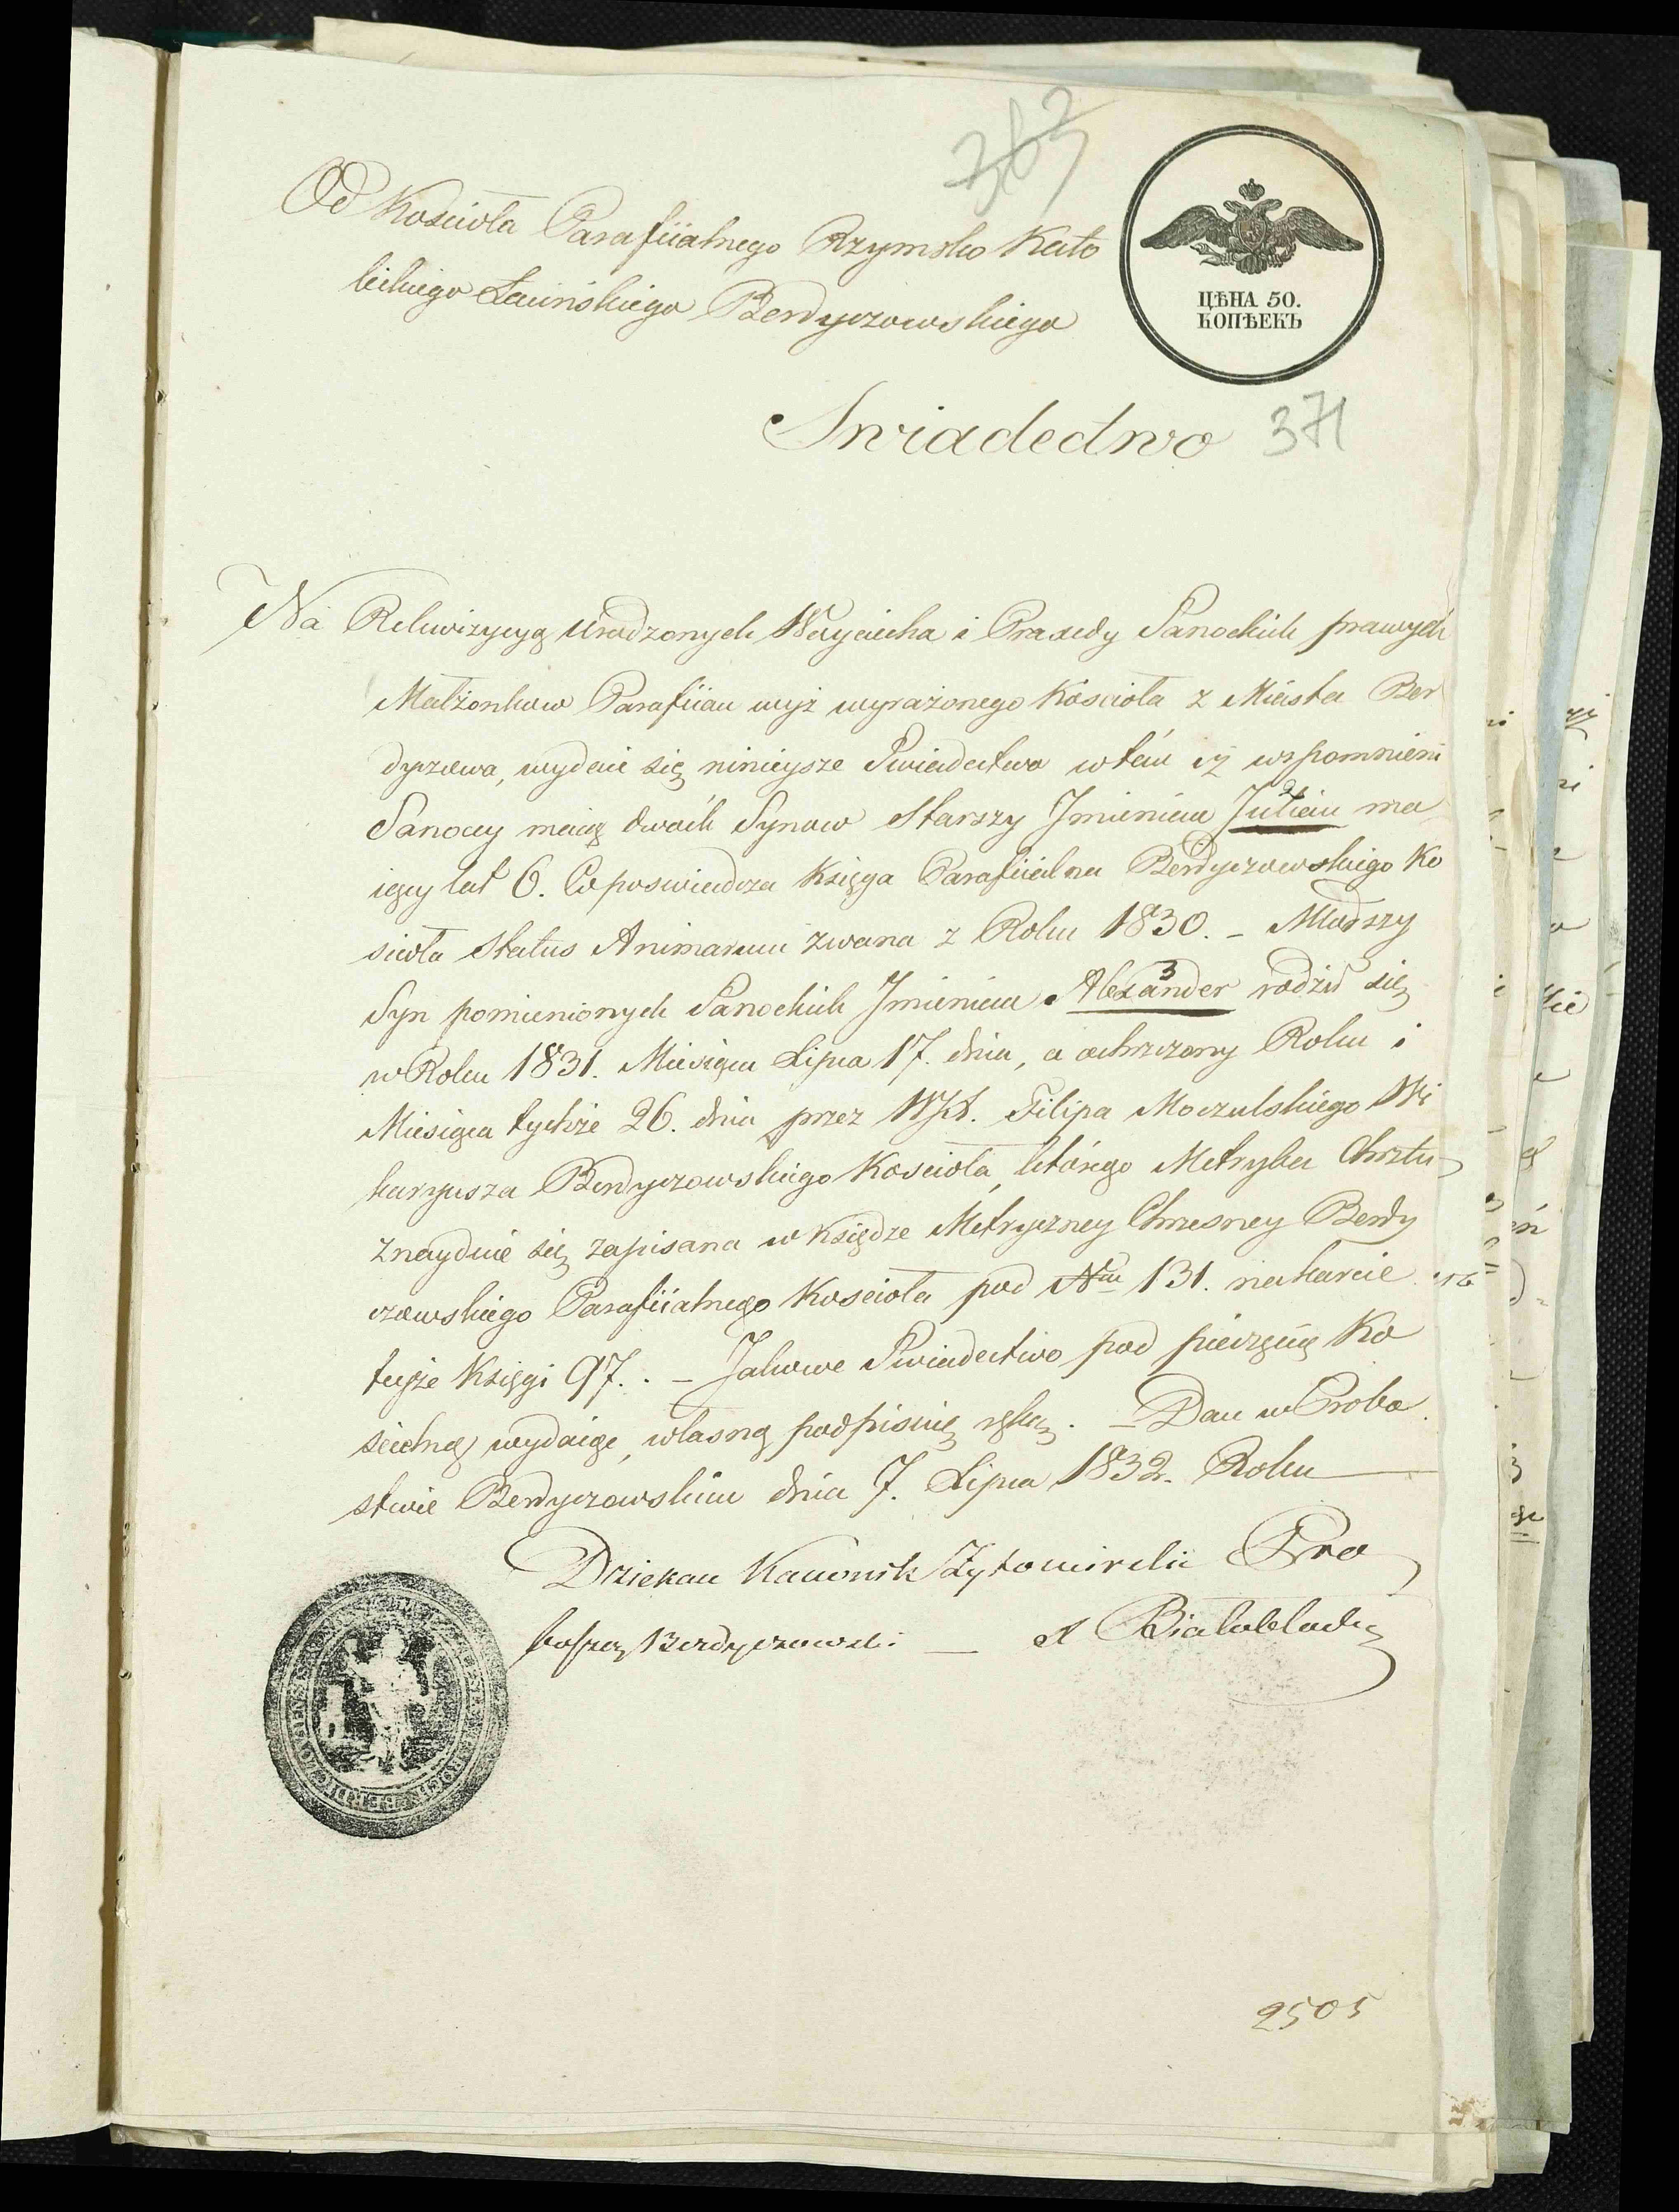 362
Od Kościoła Parafiialnego Rzymsko Kato
lickiego Łacińskiego Berdyczowskiego
ЦѢНА 50.
КОПѢЕКЪ
Swiadectwo
371
Na Rekwizycyą Urodzonych Woyciecha i Praxedy Sanockich prawych
Małżonkow Parafiian wyż wyrażonego Kościoła z Miasta Ber
dyczowa, wydaie się ninieysze Swiadectwo w tém iż wspomnieni
Sanoccy maią dwoch Synow Starszy Jmieniem Julian ma
iący lat 6. Co poswiadcza Księga Parafiialna Berdyczowskiego Ko
scioła Status Animarum zwana z Roku 1830. – Młodszy
3
Syn pomienionych Sanockich Jmieniem Alexander rodził się
w Roku 1831. Miesiąca Lipca 17. dnia, a ochrzczony Roku i
Miesiąca tychże 26. dnia przez WJX. Filipa Moczulskiego Wi
karyusza Berdyczowskiego Kościoła, którego Metryka Chrztu
znayduie się zapisana w Księdze Metryczney Chrzesney Berdy
czowskiego Parafiialnego Kościoła pod Nm 131. na karcie
teyże Księgi 97. . – Jakowe Swiadectwo pod pieczęcią Ko
scielną wydaiąc, własną podpisuię ręką. – Dan w Probo
stwie Berdyczowskim dnia 7. Lipca 1832. Roku
Dziekan Kanonik Żytomirski Pro
boszcz Berdyczowski —
2505